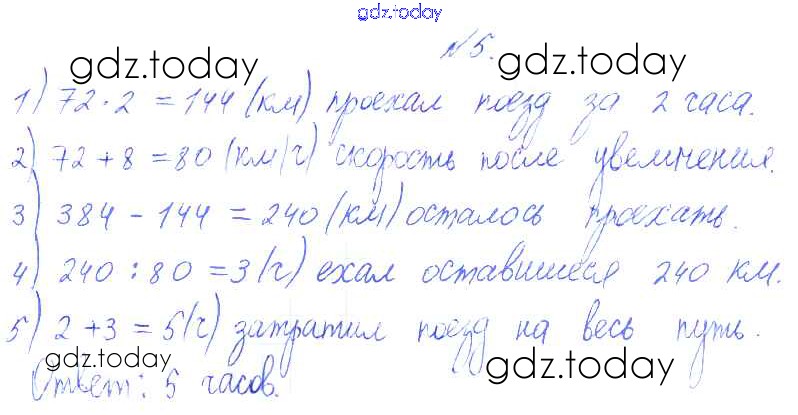 gdz.today
№5.
gdz.today gdz.today
1) 72·2 = 144 (км) проехал поезд за 2 часа.
2) 72 + 8 = 80 (км/ч) скорость после увеличения.
gdz.today gdz.today
3) 384 - 144 = 240 (км) осталось проехать.
4) 240 : 80 = 3 (ч) ехал оставшиеся 240 км.
5) 2 + 3 = 5 (ч) затратил поезд на весь путь.
gdz.today gdz.today
Ответ: 5 часов.